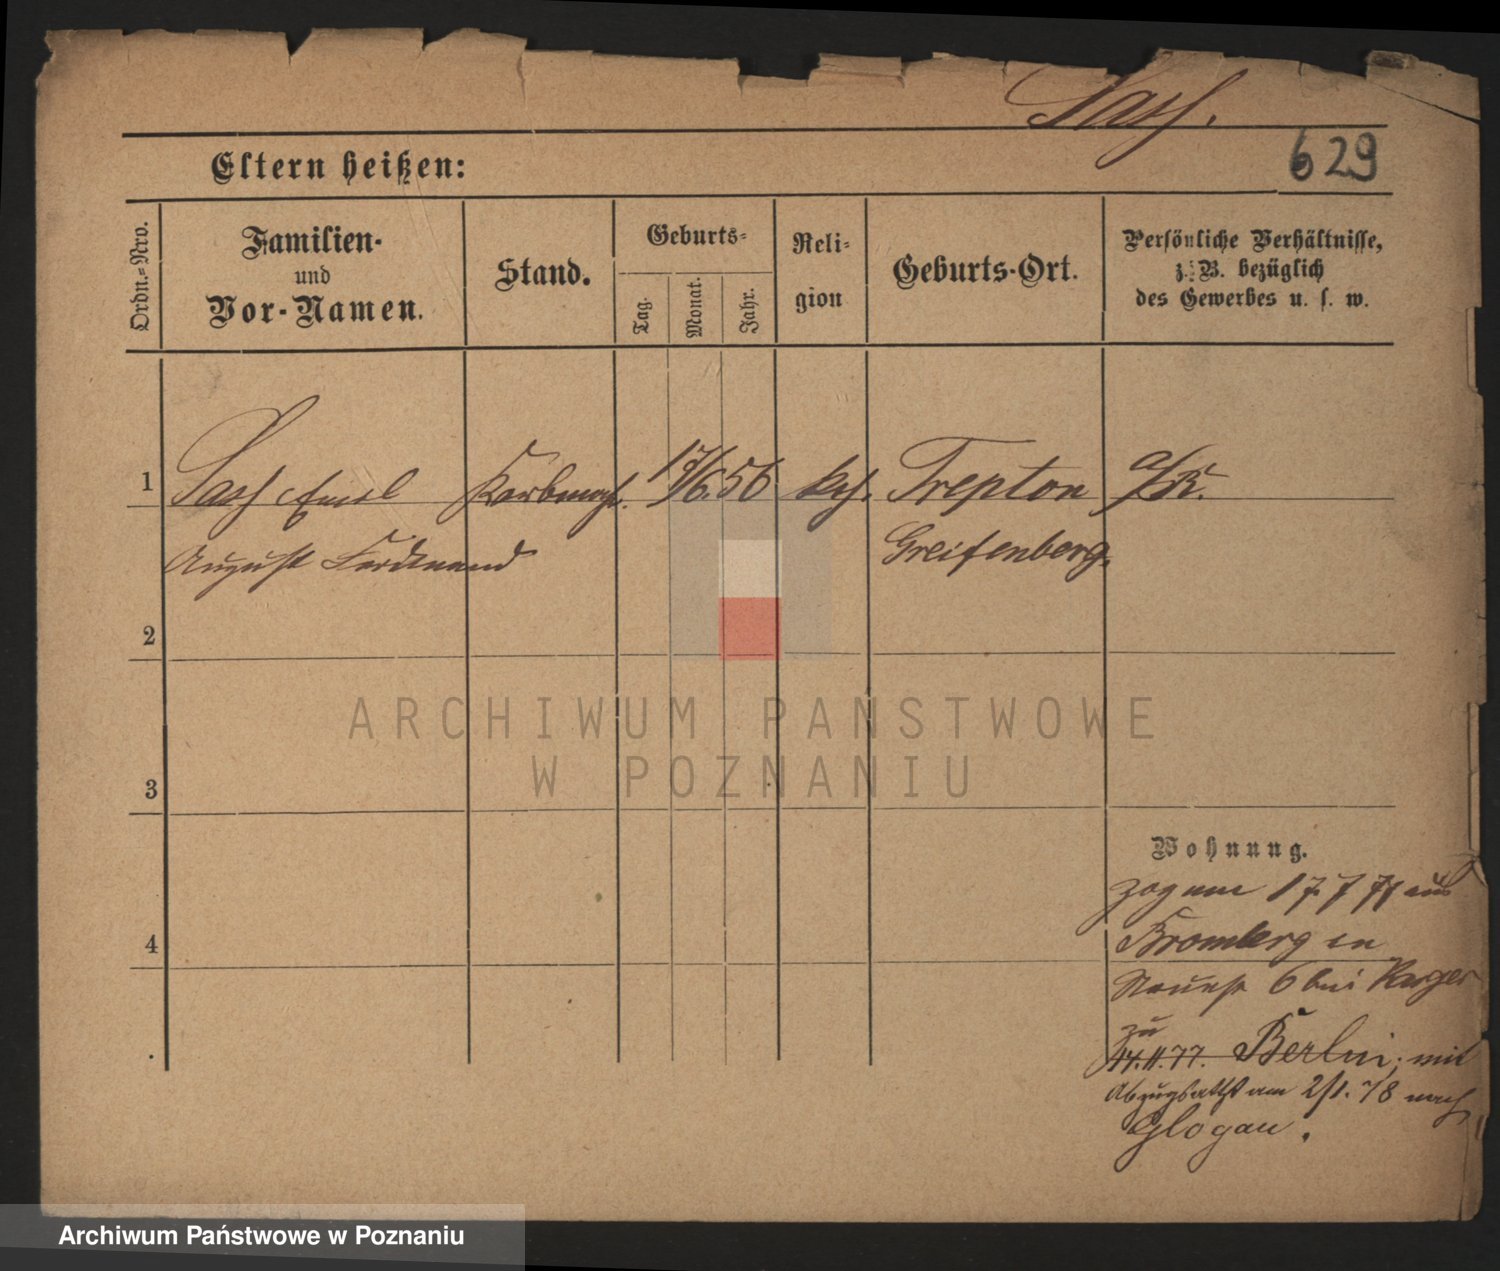 629
Eltern heißen:
Ordn.-Nro.
Familien-
und
Vor-Namen.
Stand.
Geburts-
Tag.
Monat.
Jahr.
Reli-
gion
Geburts-Ort.
Persönliche Verhältnisse,
z. B. bezüglich
des Gewerbes u. s. w.
1
Emil
17/6. 56
Treptow
a/R.
August Ferdinand
Greifenberg
2
ARCHIWUM PAŃSTWOWE
W POZNANIU
3
Wohnung.
zog am 17 7 77 aus
Bromberg in
4
6 bei
zu
14.11.77. Berlin, mit
Abzugsattst am 2/1. 78 nach
Glogau.
Archiwum Państwowe w Poznaniu